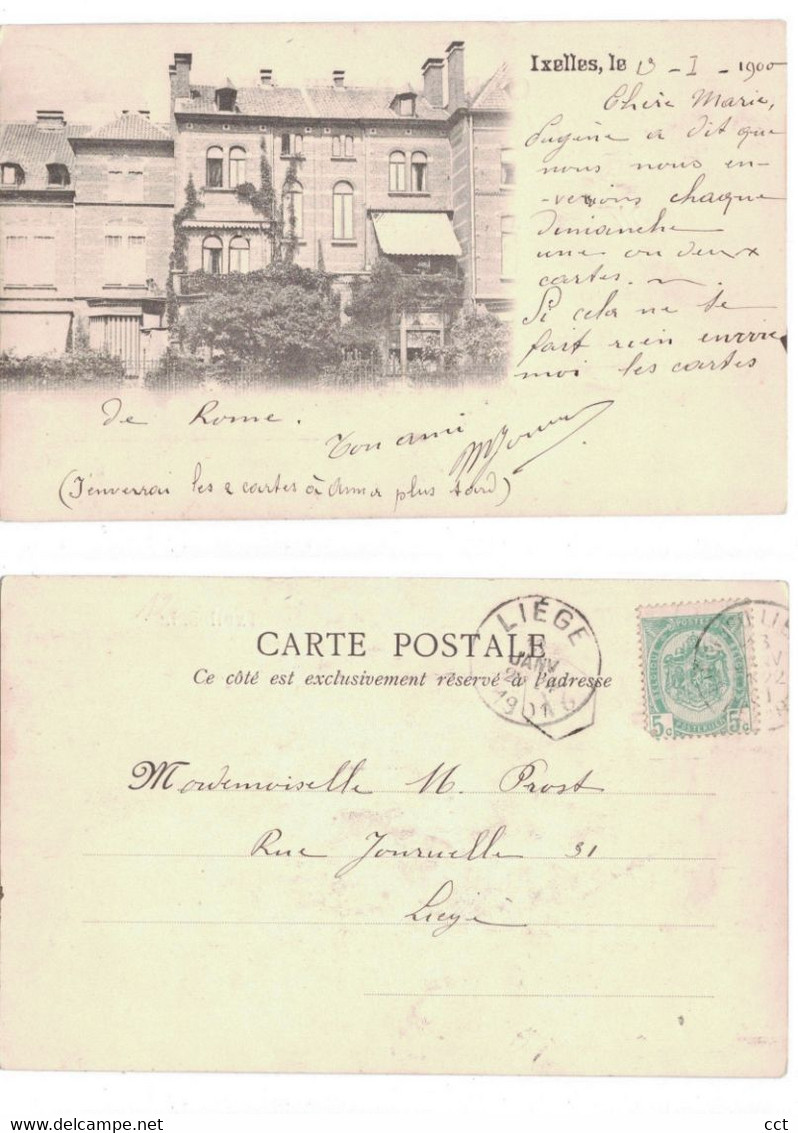 Ixelles, le 13 - I - 1900
Chère Marie,
Eugène a dit que
nous nous en-
-verions chaque
Dimanche
une ou deux
cartes. ~.
Si cela ne te
fait rien envoie
moi les cartes
de Rome.
Ton ami
(J'enverrai les 2 cartes à Anna plus tard)
CARTE POSTALE
Ce côté est exclusivement réservé à l'adresse
LIÉGE
JANV
5c 5c
Mademoiselle M. Prost
Rue Journelle 31
Liège
www.delcampe.net
cct